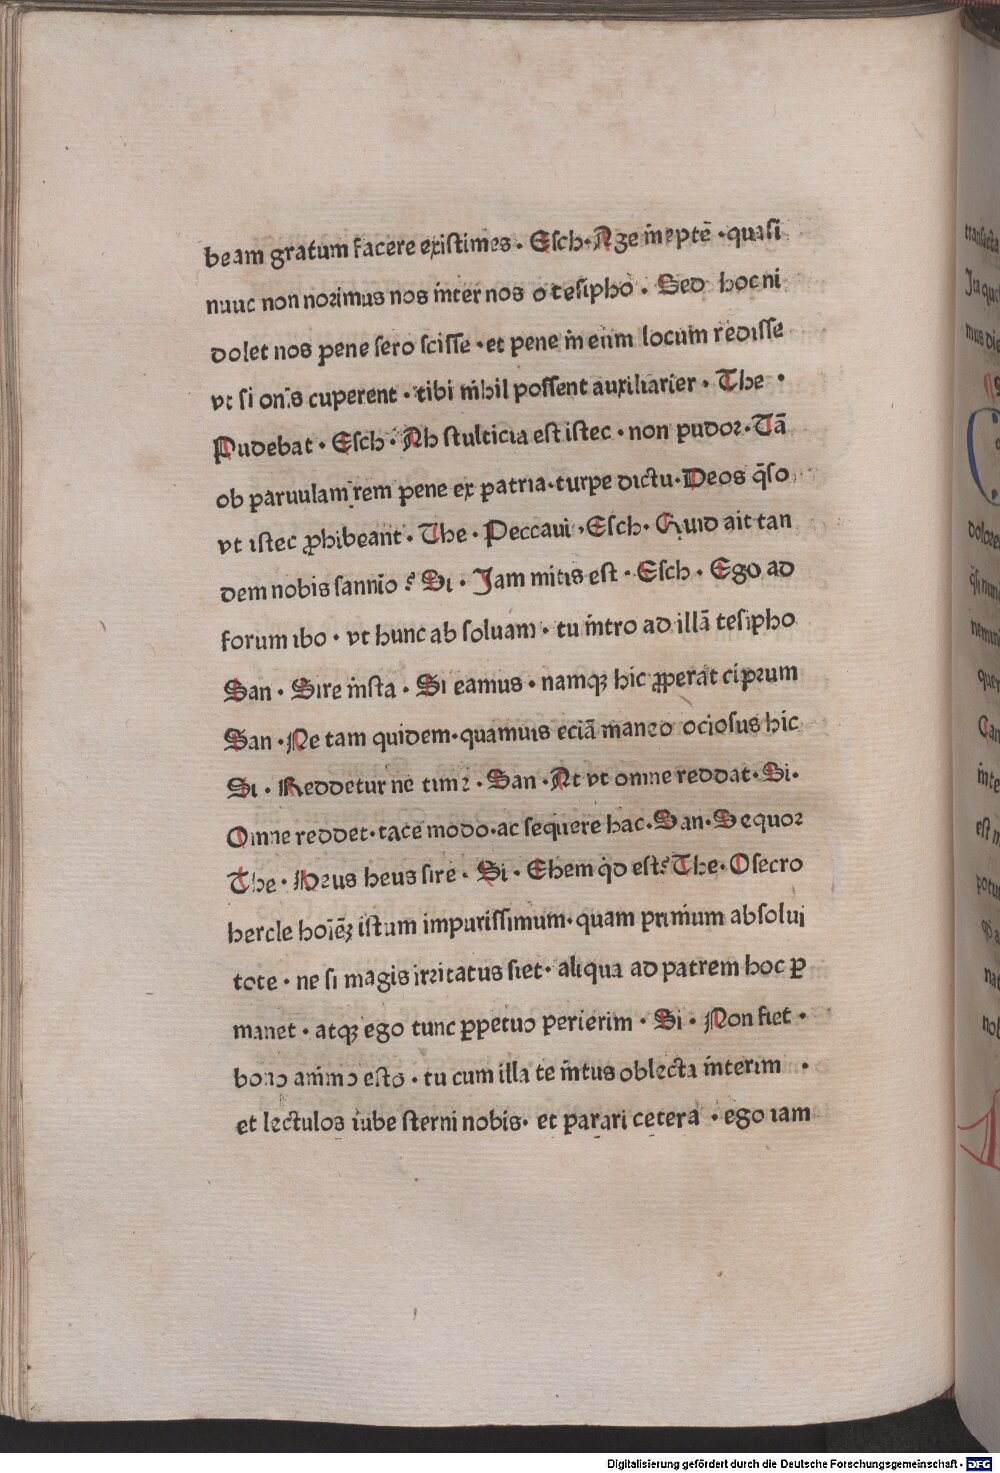 beam gratum facere existimes · Esch · Age ineptē · quasi
nuuc non norimus nos inter nos o tesipho · Sed hoc ni
dolet nos pene sero scisse · et pene in eum locum redisse
vt si oms cuperent · tibi nihil possent auxiliarier · The ·
Pudebat · Esch · Ah stulticia est istec · non pudor · Tā
ob paruulam rem pene ex patria · turpe dictu · Deos q̄so
vt istec ꝓhibeant · The · Peccaui · Esch · Quid ait tan
dem nobis sannio ? Si · Jam mitis est · Esch · Ego ad
forum ibo · vt hunc absoluam · tu intro ad illā tesipho
San · Sire insta · Si eamus · namqꝫ hic ꝓperat ciprum
San · Ne tam quidem · quamuis eciā maneo ociosus hic
Si · Reddetur ne time · San · At vt omne reddat · Si ·
Omne reddet · tace modo · ac sequere hac · San · Sequor
The · Heus heus sire · Si · Ehem qd est? The · Osecro
hercle hoiēꝫ istum impurissimum · quam primum absolui
tote · ne si magis irritatus siet · aliqua ad patrem hoc ꝑ
manet · atqꝫ ego tunc ꝑpetuo perierim · Si · Non fiet ·
bono animo esto · tu cum illa te intus oblecta interim ·
et lectulos iube sterni nobis · et parari cetera · ego iam
Digitalisierung gefördert durch die Deutsche Forschungsgemeinschaft - DFG